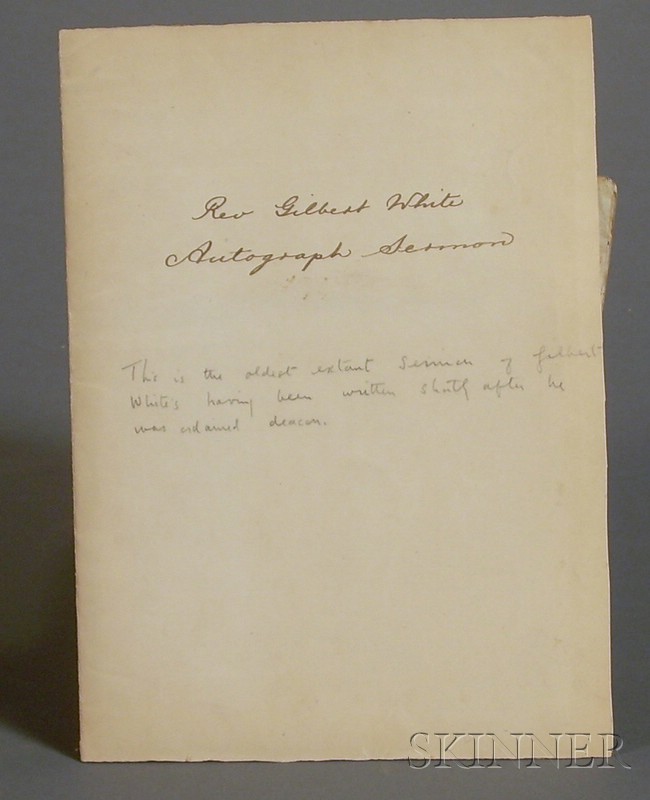 Rev Gilbert White
Autograph Sermon
This is the oldest extant Sermon of Gilbert
White's having been written shortly after he
was ordained deacon.
SKINNER